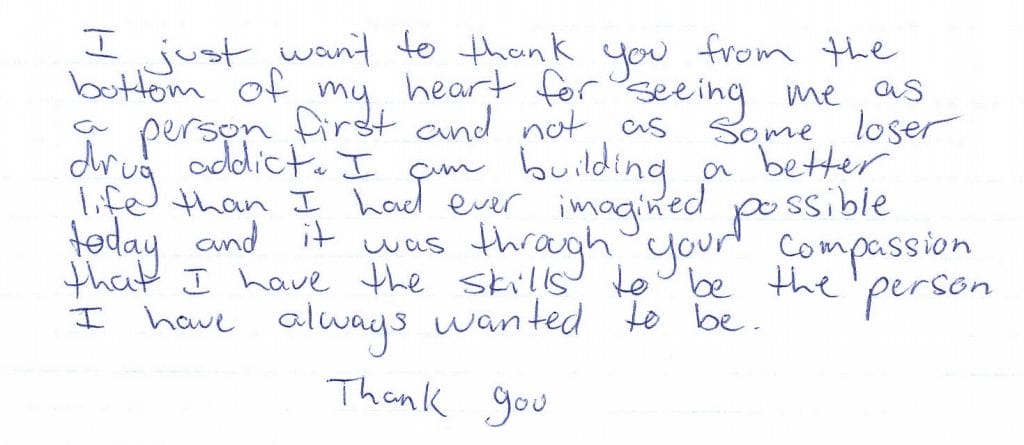 I just want to thank you from the
bottom of my heart for seeing me as
a person first and not as some loser
drug addict. I am building a better
life than I had ever imagined possible
today and it was through your compassion
that I have the skills to be the person
I have always wanted to be.
Thank you